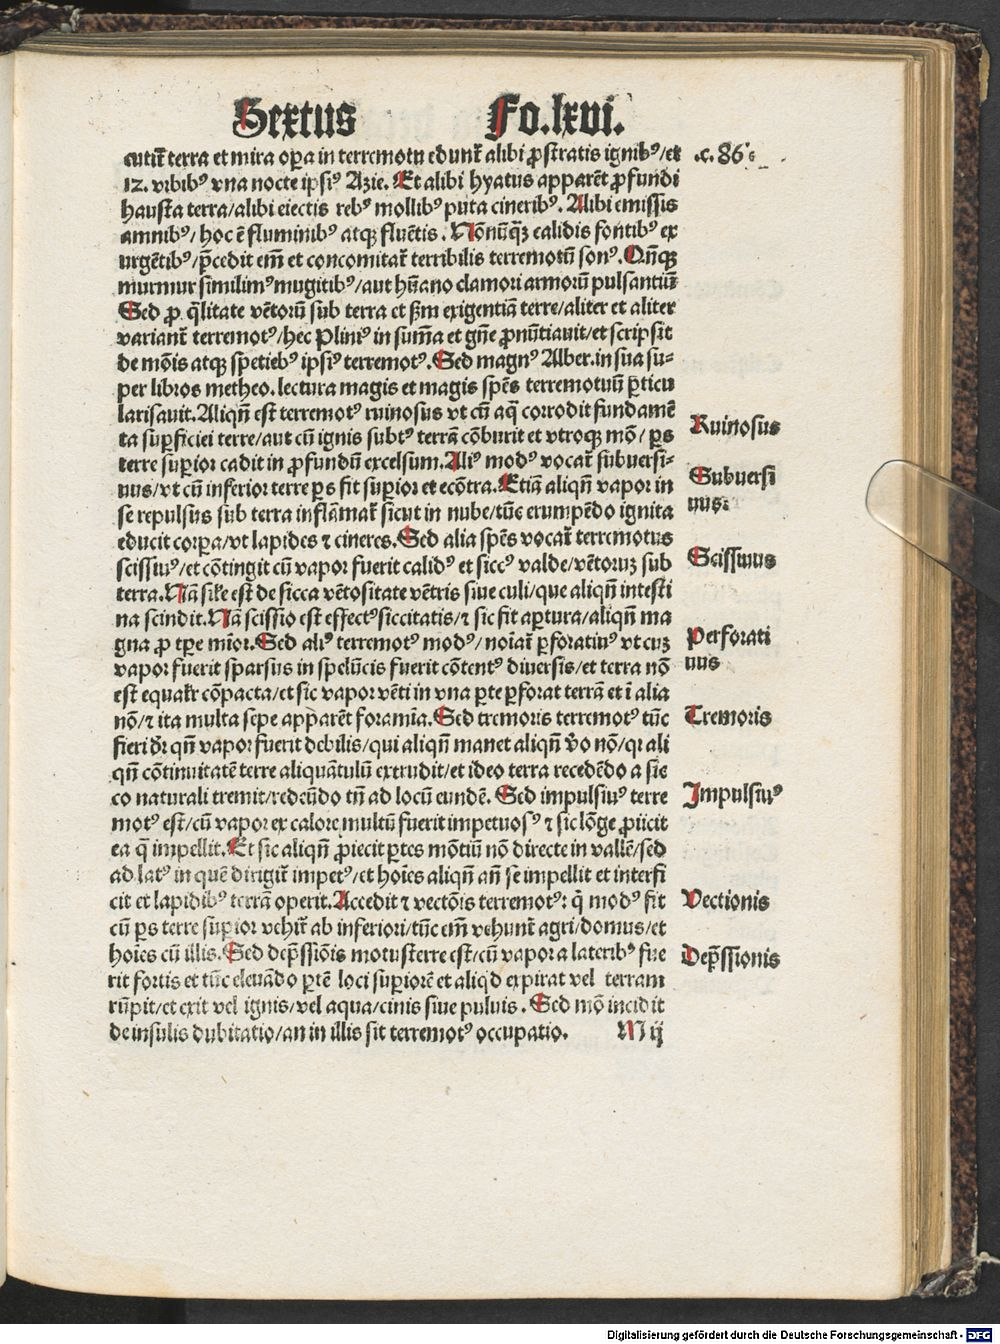 Sextus Fo.lxvi.
cutit̄ terra et mira oꝑa in terremotu edunt̄ alibi ꝓstratis ignibꝰ/et .c. 86:
12. vrbibꝰ vna nocte ipsiꝰ Azie. Et alibi hyatus apparēt ꝓfundi
hausta terra/alibi eiectis rebꝰ mollibꝰ puta cineribꝰ. Alibi emissis
amnibꝰ/ hoc ē fluminibꝰ atqꝫ fluētis. Nōnūqꝫ calidis fontibꝰ ex
urgētibꝰ/p̄cedit em̄ et concomitat̄ terribilis terremotū sonꝰ. Qn̄qꝫ
murmur similimꝰ mugitibꝰ/aut hūano clamori armorū pulsantiū
Sed ꝓ q̄litate vētorū sub terra et ẜm exigentiā terre/aliter et aliter
variant̄ terremotꝰ/hec Pliniꝰ in sum̄a et gn̄e ꝓnūtiauit/et scripsit
de mōis atqꝫ spetiebꝰ ipsiꝰ terremotꝰ. Sed magnꝰ Alber. in sua su-
per libros metheo. lectura magis et magis spēs terremotuū ꝑticu
larisauit. Aliqn̄ est terremotꝰ ruinosus vt cū aq̄ corrodit fundamē
ta suꝑficiei terre/aut cū ignis subtꝰ terrā cōburit et vtroqꝫ mō/ ꝑs
Ruinosus
terre suꝑior cadit in ꝓfundū excelsum. Aliꝰ modꝰ vocat̄ subuersi-
uus/vt cū inferior terre ꝑs fit suꝑior et ecōtra. Etiā aliqn̄ vapor in
Subuersi
uus:
se repulsus sub terra inflāmat̄ sicut in nube/tūc erumpēdo ignita
educit corꝑa/vt lapides ⁊ cineres. Sed alia spēs vocat̄ terremotus
scissiuꝰ/et cōtingit cū vapor fuerit calidꝰ et siccꝰ valde/vētoruꝫ sub
Scissiuus
terra. Nā sile est de sicca vētositate vētris siue culi/que aliqn̄ intesti
na scindit. Nā scissio est effectꝰ siccitatis/⁊ sic fit aꝑtura/aliqn̄ ma
gna ꝓ tꝑe mīor. Sed aliꝰ terremotꝰ modꝰ/ noīat̄ ꝑforatiuꝰ vt cuꝫ
Perforati
uus
vapor fuerit sparsus in spelūcis fuerit cōtentꝰ diuersis/et terra nō
est equalr cōpacta/et sic vapor vēti in vna ꝑte ꝑforat terrā et ī alia
nō/⁊ ita multa sepe apparēt foramīa. Sed tremoris terremotꝰ tūc
Tremoris
fieri dr̄ qn̄ vapor fuerit debilis/qui aliqn̄ manet aliqn̄ v̄o nō/qr ali
qn̄ cōtinuitatē terre aliquātulū extrudit/et ideo terra recedēdo a sic
co naturali tremit/redeūdo tn̄ ad locū eundē. Sed impulsiuꝰ terre
Impulsiuꝰ
motꝰ est/cū vapor ex calore multū fuerit impetuosꝰ ⁊ sic lōge ꝓiicit
ea q̄ impellit. Et sic aliqn̄ ꝓiecit ꝑtes mōtiū nō directe in vallē/sed
ad latꝰ in quē dirigit̄ impetꝰ/et hoīes aliqn̄ an̄ se impellit et interfi
cit et lapidibꝰ terrā operit. Accedit ⁊ vectōis terremotꝰ: q̄ modꝰ fit
Vectionis
cū ꝑs terre suꝑior vehit̄ ab inferiori/tūc em̄ vehunt̄ agri/domus/et
hoīes cū illis. Sed dep̄ssiōis motusterre est/cū vapor a lateribꝰ fue
Dep̄ssionis
rit fortis et tūc eleuādo ꝑtē loci suꝑiorē et aliqd expirat vel terram
rūpit/et exit vel ignis/vel aqua/cinis siue puluis. Sed mō incidit
de insulis dubitatio/an in illis sit terremotꝰ occupatio. M ij
Digitalisierung gefördert durch die Deutsche Forschungsgemeinschaft - DFG